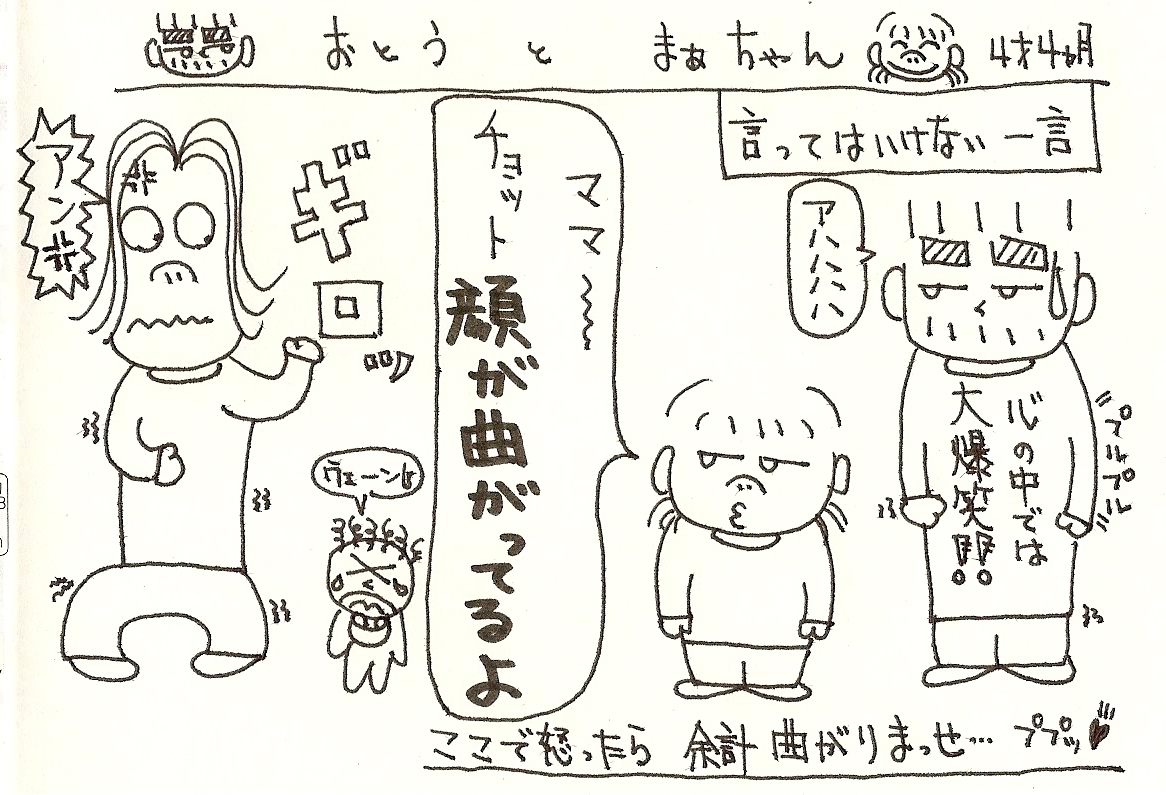 おとうと と まぁちゃん 4才4ヵ月
言ってはいけない一言
アハハハハ
心の中では
大爆笑!!
プルプルプル
ママ~
チョット顔が曲がってるよ
ギロッ
アン
ヴェーン
ここで怒ったら 余計曲がりまっせ… ププッ